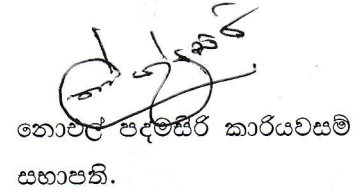 නොචල් පදමසිරි කාරියවසම්
සභාපති.